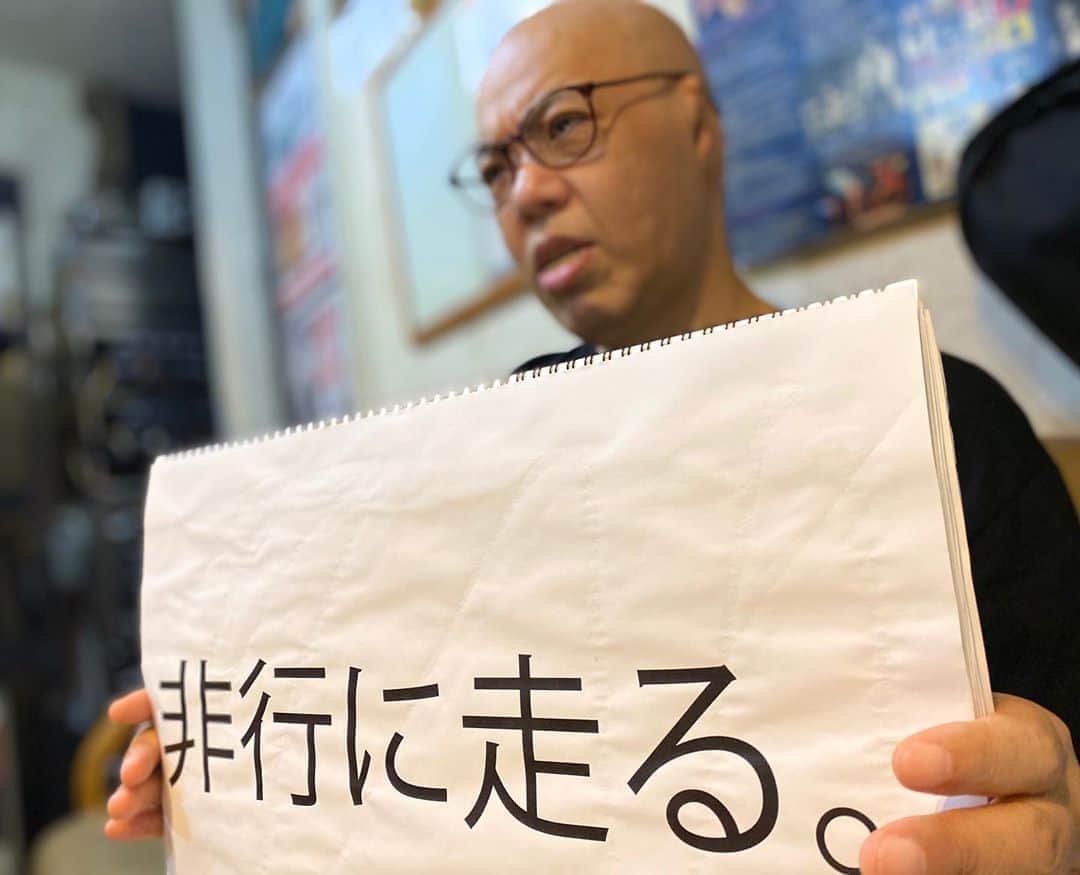 非行に走る。